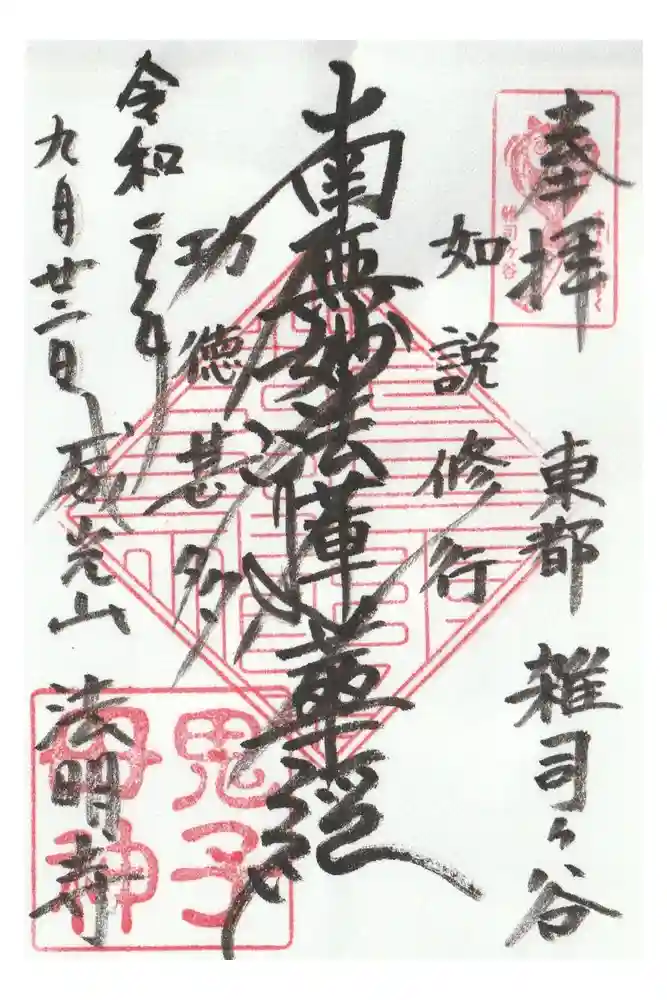 奉拝
東都 雑司ヶ谷
如説修行
南無妙法蓮華経
功徳甚多
令和二年
九月廿二日 威光山 法明寺
雑司ヶ谷
鬼子
母神